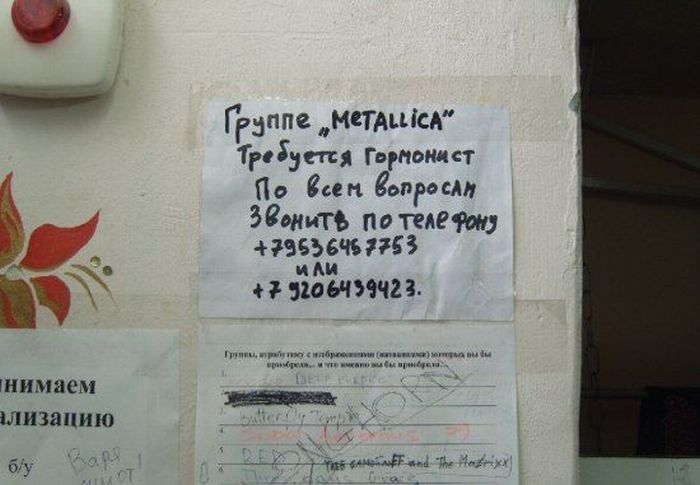 Группе „МеTALLiCA”
Требуется гормонист
По всем вопросам
Звонитв по телефону
+79536457753
или
+79206439423.
Группы, атрибутику с изображением (названиями) которых вы бы
приобрели... и что именно вы бы приобрели...
Butterfly Temple
RED
UNICHORN
ТРЕБ САМОЙЛОFF and The Matrixx
нимаем
ализацию
б/у
Варя